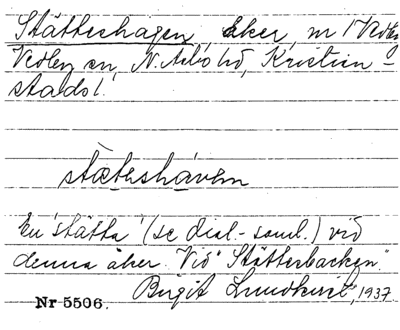 Stätteshagen, åker, nr 1 Vedby
Vedby sn, N. Åsbo hd, Kristian-
stads l.
stætesháven
En 'stätta' (se dial.-saml.) vid
denna åker. "Vid" Stätterbacken."
Birgit Lundkvist, 1937
Nr 5506.